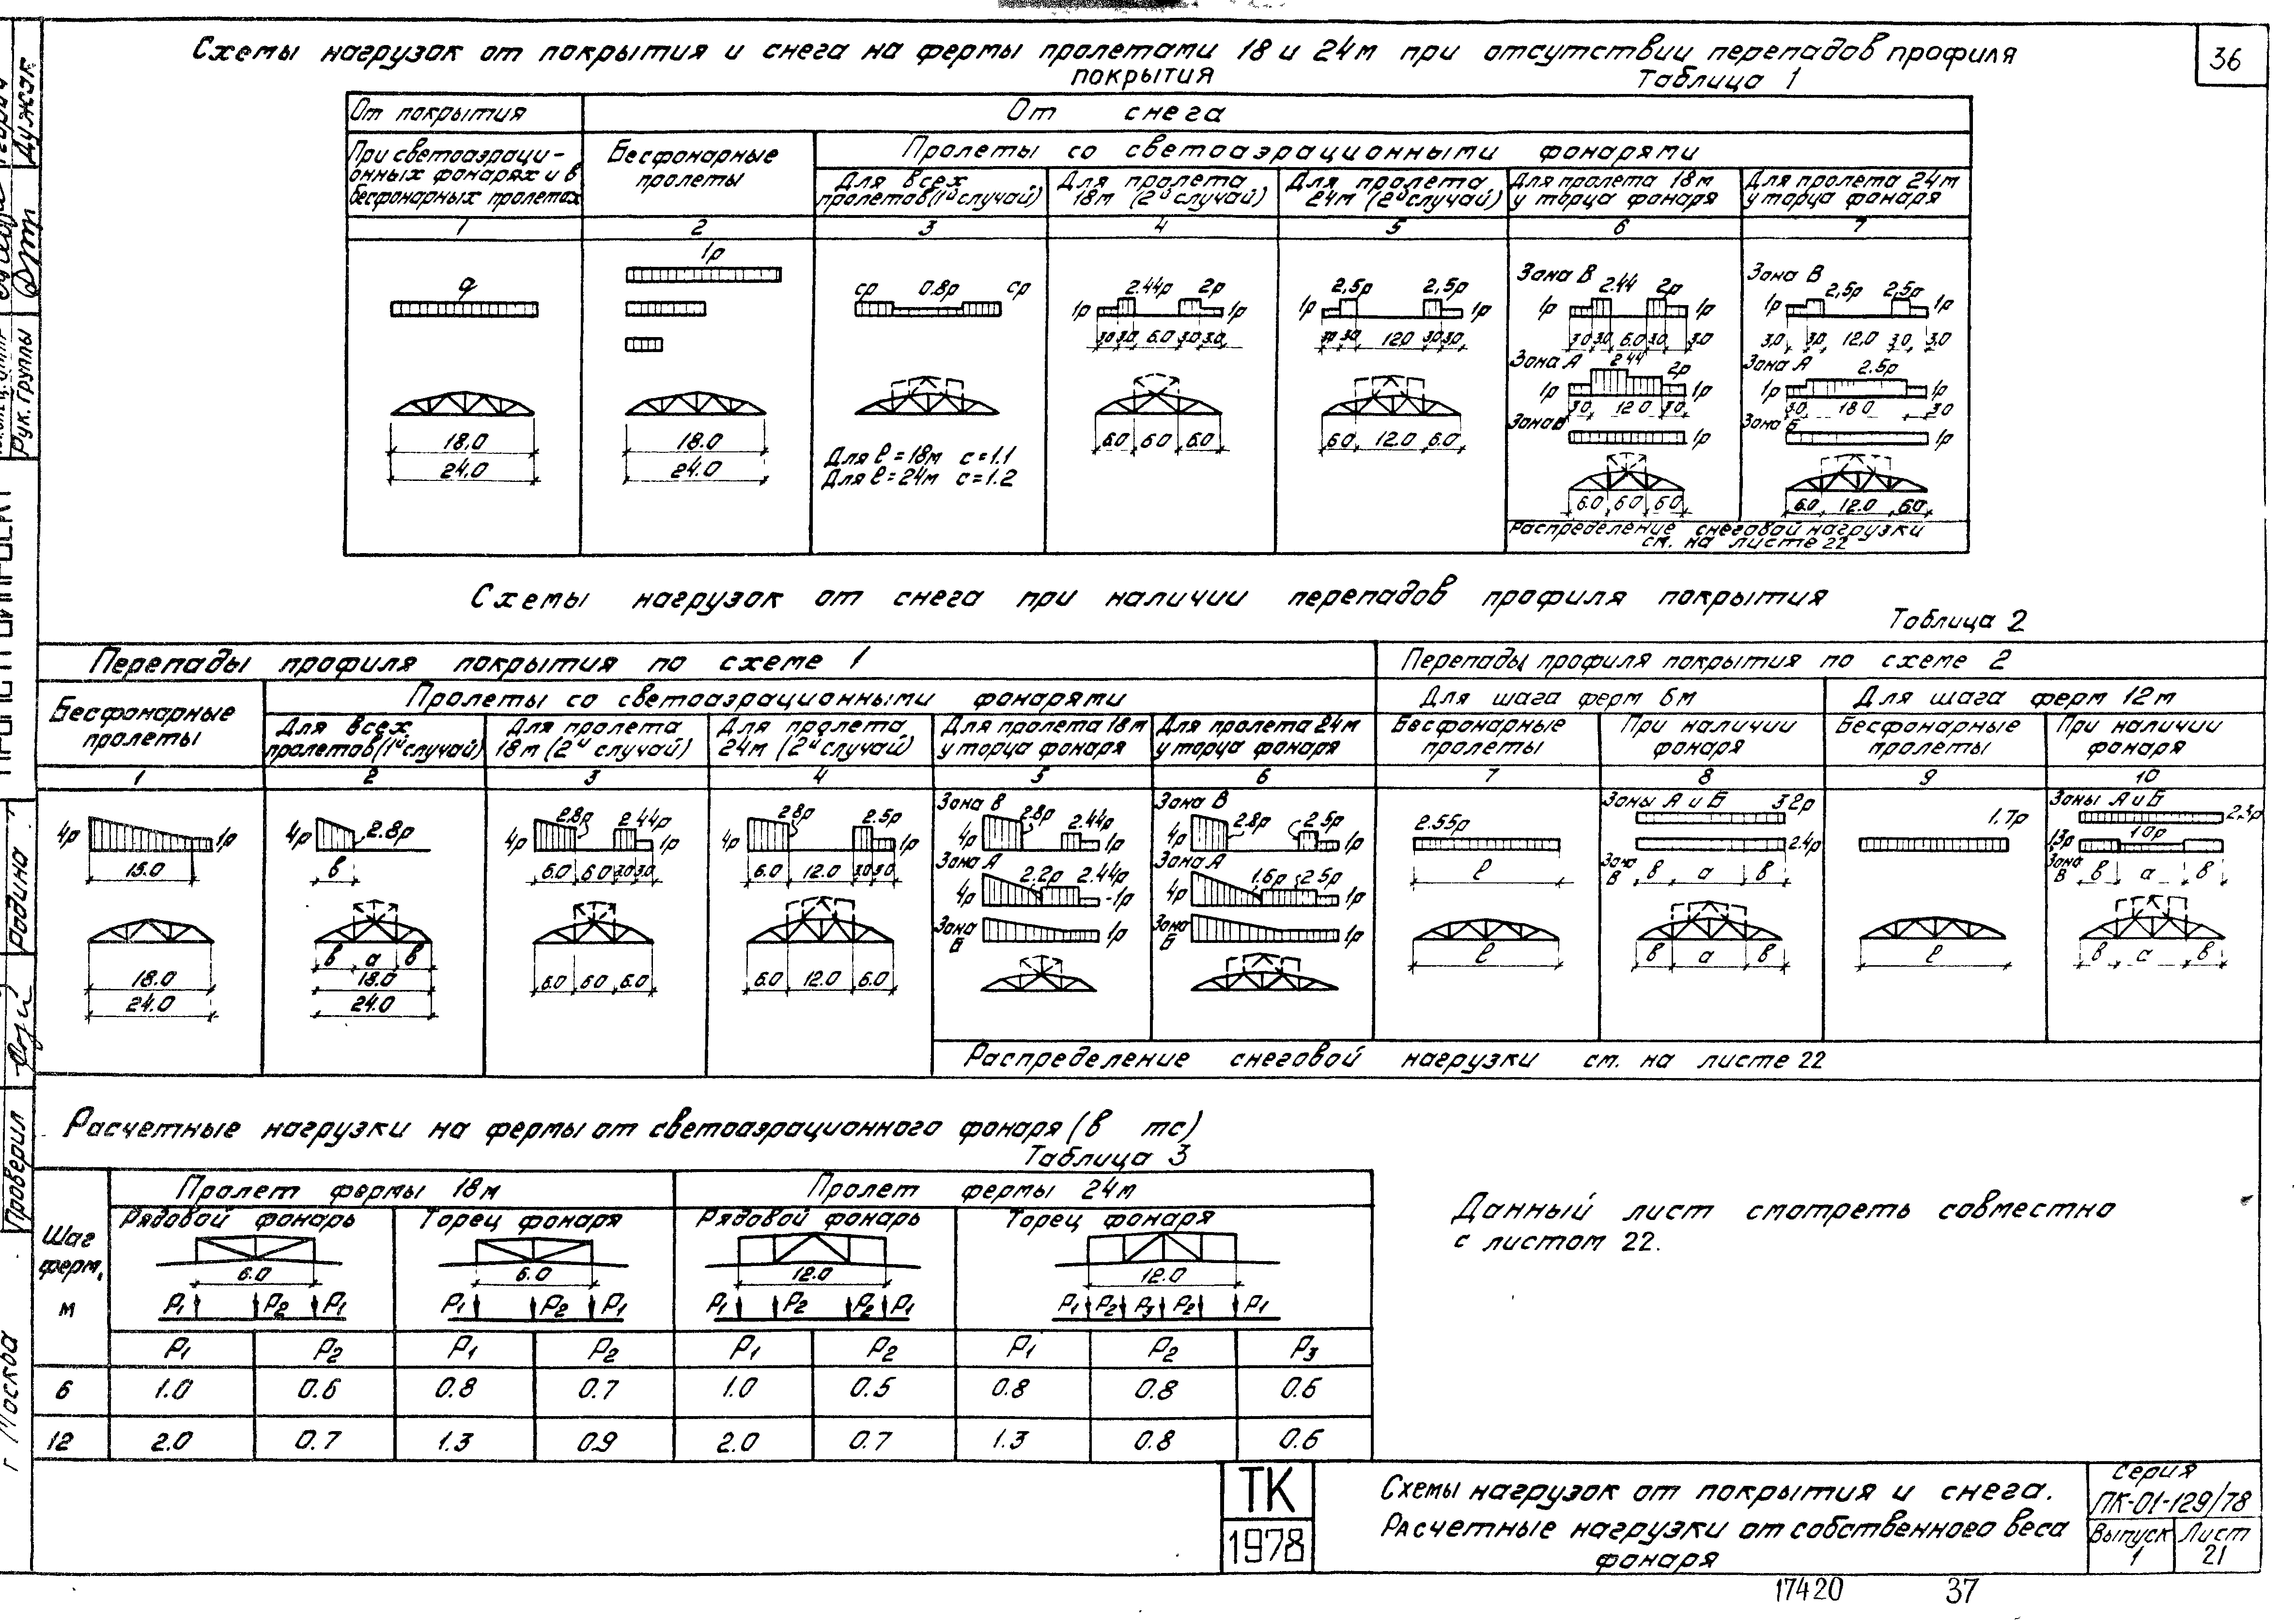 36
Схемы нагрузок от покрытия и снега на фермы пролетами 18 и 24м при отсутствии перепадов профиля
покрытия
Таблица 1
От покрытия
От снега
При светоаэраци-
онных фонарях и в
бесфонарных пролетах
Бесфонарные
пролеты
Пролеты со светоаэрационными фонарями
Для всех
пролетов (1й случай)
Для пролета
18м (2й случай)
Для пролета
24м (2й случай)
Для пролета 18м
у торца фонаря
Для пролета 24м
у торца фонаря
1 2 3 4 5 6 7
q
18.0
24.0
1р
18.0
24.0
ср 0.8р ср
Для ℓ=18м с=1.1
Для ℓ=24м с=1.2
1р 2.44р 2р 1р
3.0 3.0 6.0 3.0 3.0
6.0 6.0 6.0
1р 2,5р 2,5р 1р
3.0 3.0 12.0 3.0 3.0
6.0 12.0 6.0
Зона В
1р 2.44 2р 1р
3.0 3.0 6.0 3.0 3.0
Зона А
1р 2.44 2р 1р
3.0 12.0 3.0
Зона В
1р
6.0 6.0 6.0
Зона В
1р 2,5р 2,5р 1р
3.0 3.0 12.0 3.0 3.0
Зона А
1р 2.5р 1р
3.0 18.0 3.0
Зона Б
1р
6.0 12.0 6.0
Распределение снеговой нагрузки
см. на листе 22
Схемы нагрузок от снега при наличии перепадов профиля покрытия
Таблица 2
Перепады профиля покрытия по схеме 1
Перепады профиля покрытия по схеме 2
Бесфонарные
пролеты
Пролеты со светоаэрационными фонарями
Для шага ферм 6м
Для шага ферм 12м
Для всех
пролетов (1й случай)
Для пролета
18м (2й случай)
Для пролета
24м (2й случай)
Для пролета 18м
у торца фонаря
Для пролета 24м
у торца фонаря
Бесфонарные
пролеты
При наличии
фонаря
Бесфонарные
пролеты
При наличии
фонаря
1 2 3 4 5 6 7 8 9 10
4р 1р
15.0
18.0
24.0
4р 2.8р
в
в а в
18.0
24.0
4р 2.8р 2.44р 1р
6.0 6.0 3.0 3.0
6.0 6.0 6.0
4р 2.8р 2.5р 1р
6.0 12.0 3.0 3.0
6.0 12.0 6.0
Зона В
4р 2.8р 2.44р 1р
Зона А
4р 2.2р 2.44р 1р
Зона Б
1р
Зона В
4р 2.8р 2.5р 1р
Зона А
4р 1.6р 2.5р 1р
Зона Б
1р
2.55р
ℓ
ℓ
Зоны А и Б 3.2р
2.4р
Зона В
в а в
в а в
1.7р
ℓ
Зоны А и Б
2.3р
1.3р 1.0р
Зона В
в а в
в а в
Распределение снеговой нагрузки см. на листе 22
Расчетные нагрузки на фермы от светоаэрационного фонаря (в тс)
Таблица 3
Шаг
ферм,
м
Пролет фермы 18м
Пролет фермы 24м
Рядовой фонарь
Торец фонаря
Рядовой фонарь
Торец фонаря
6.0 6.0 12.0 12.0
Р1 Р2 Р1 Р1 Р2 Р1 Р1 Р2 Р2 Р1 Р1 Р2 Р3 Р2 Р1
Р1 Р2 Р1 Р2 Р1 Р2 Р1 Р2 Р3
6 1.0 0.6 0.8 0.7 1.0 0.5 0.8 0.8 0.6
12 2.0 0.7 1.3 0.9 2.0 0.7 1.3 0.8 0.6
Данный лист смотреть совместно
с листом 22.
ТК
1978
Схемы нагрузок от покрытия и снега.
Расчетные нагрузки от собственного веса
фонаря
Серия
ПК-01-129/78
Выпуск
1
Лист
21
17420 37
Рук. группы
Дужэк
Проверил
Родина
г. Москва